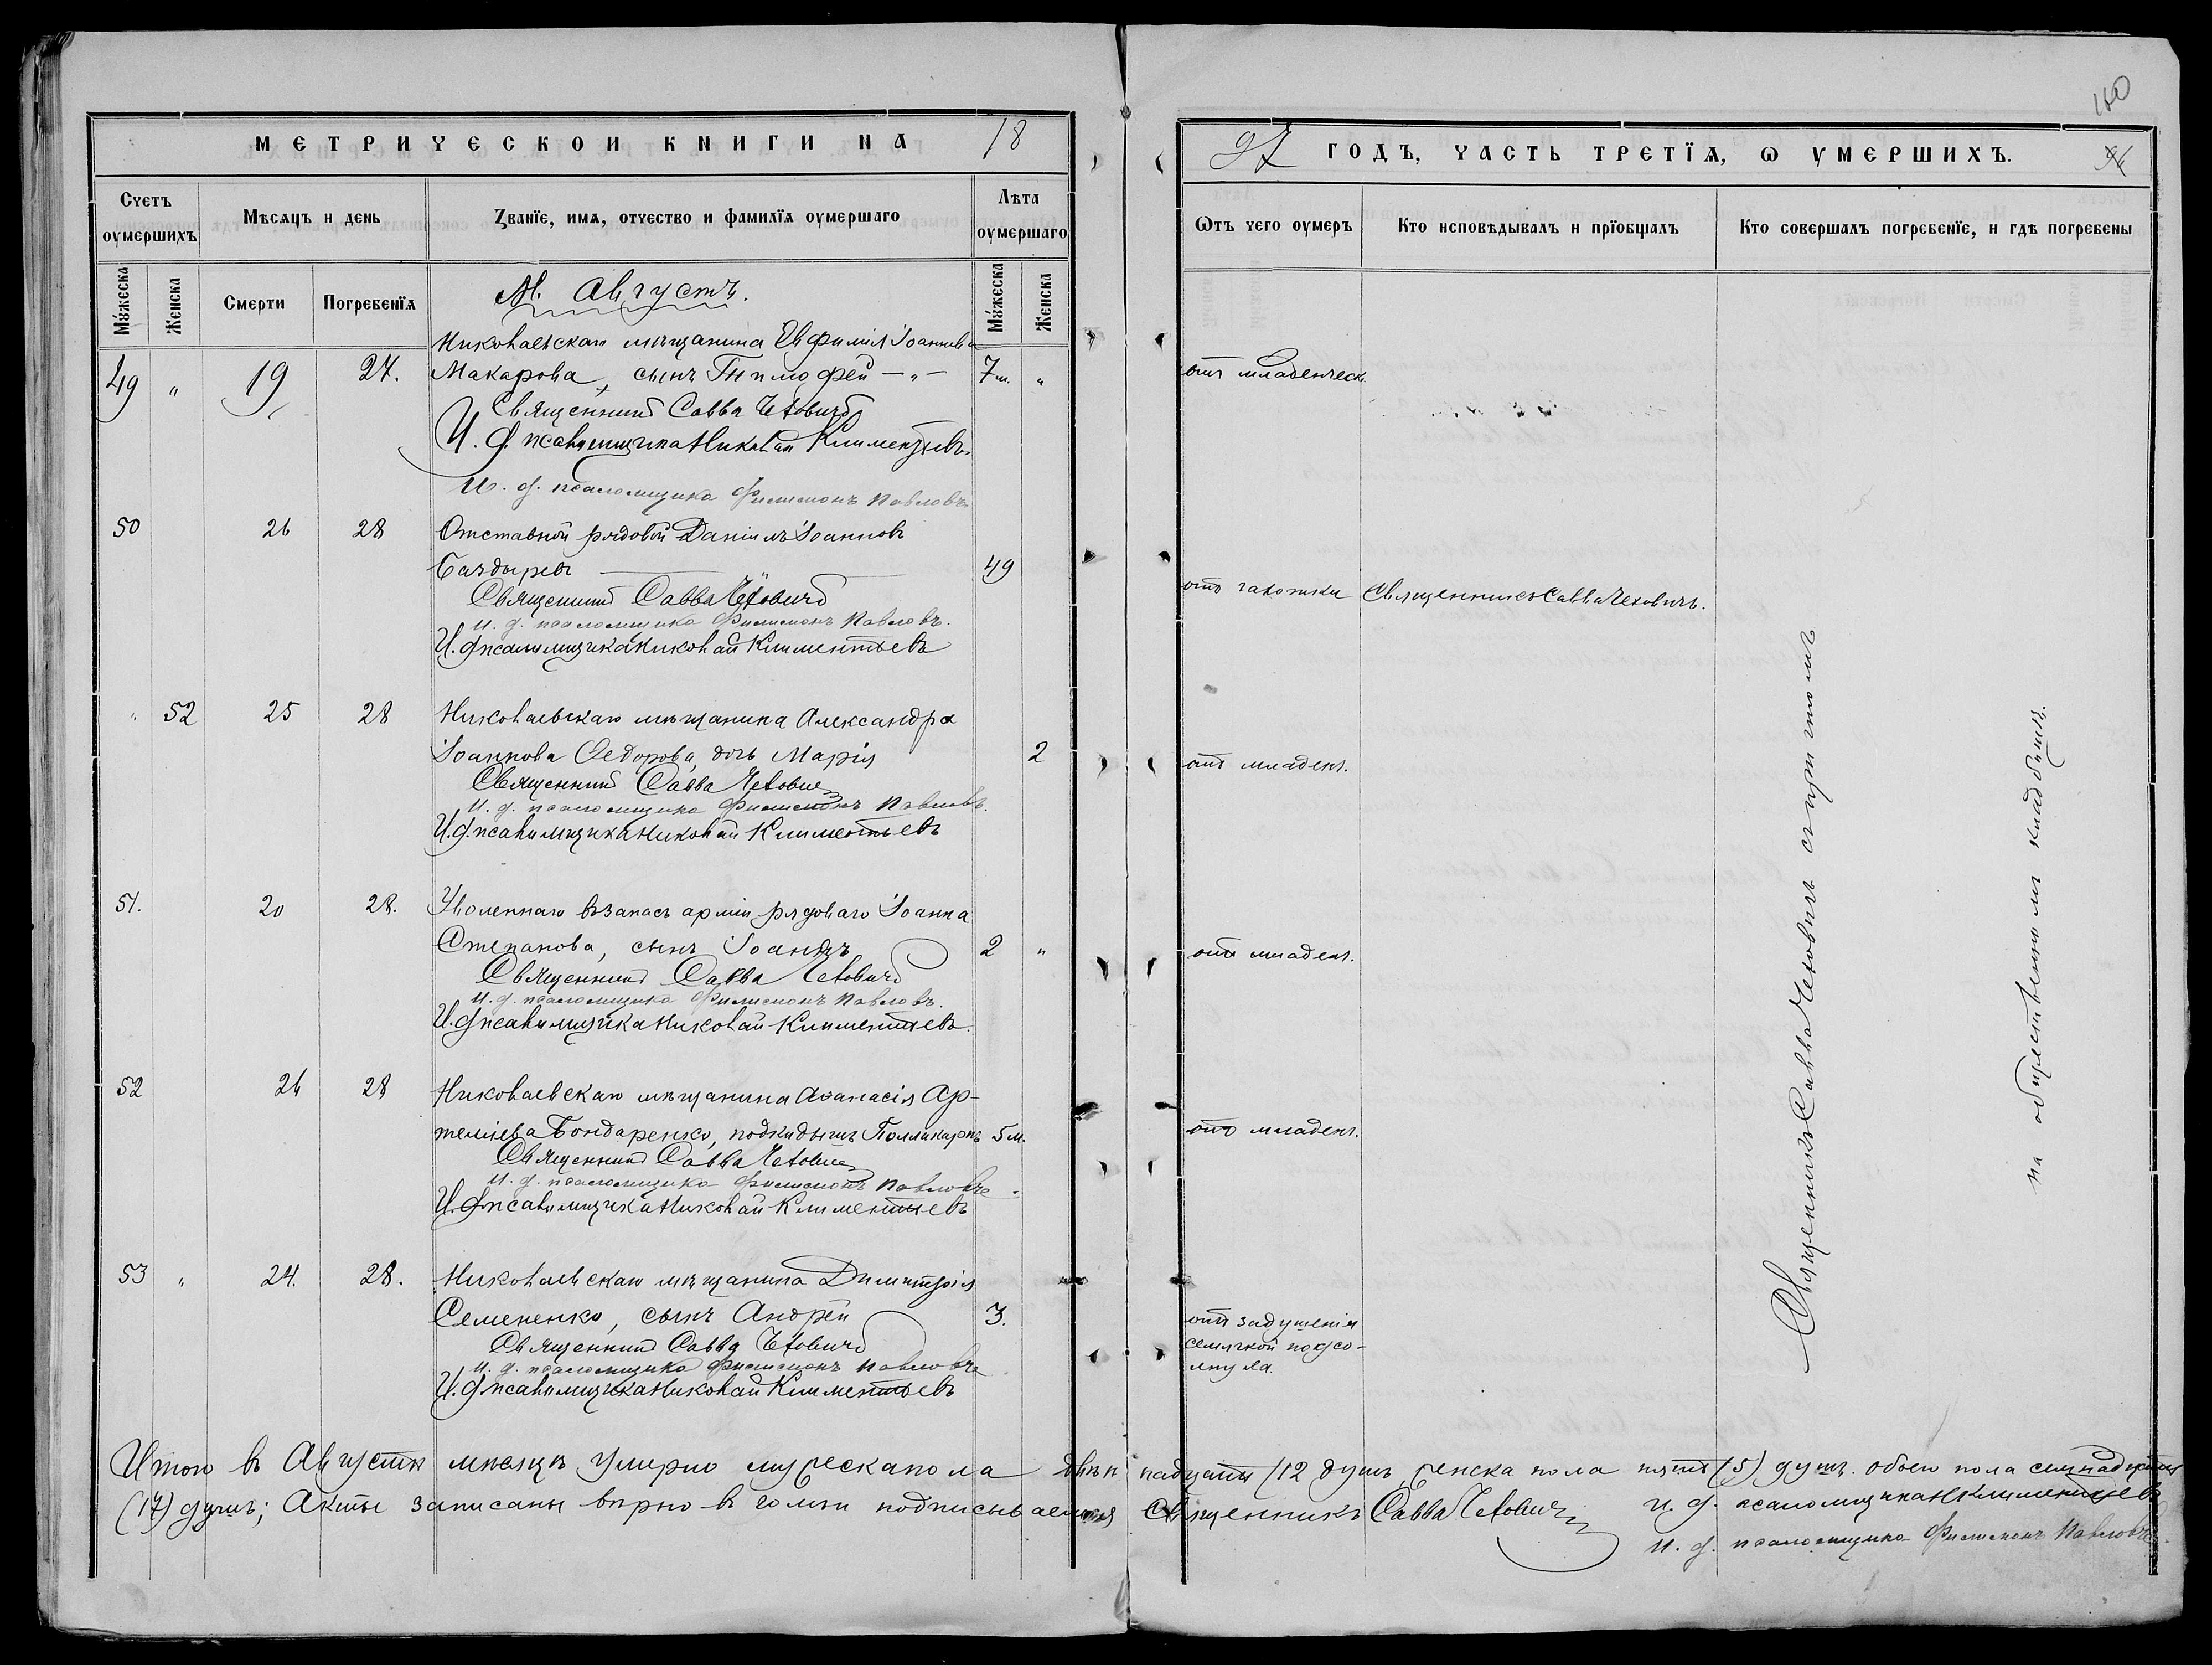 МЕТРИЧЕСКОЙ КНИГИ НА 18
Счетъ оумершихъ
Мѣсяцъ и день
Званїе, имя, отчество и фамилїя оумершаго
Лѣта оумершаго
Мужеска
Женска
Смерти
Погребенїя
М. Августъ.
Мужеска
Женска
Николаевскаго мѣщанина Евфимія Іоаннова
49 " 19 27. Макарова, сынъ Тимофей — " — 7 м. "
Священникъ Савва Чехович
И. д. псаломщика Николай Климентьевъ.
И. д. псаломщика Филимонъ Павловъ
50 26 28 Отставной рядовой Даніилъ Іоанновъ
Баздыревъ 49
Священникъ Савва Чехович
и. д. псаломщика Филимонъ Павловъ.
И. д. псаломщика Николай Климентьевъ
" 52 25 28 Николаевскаго мѣщанина Александра
Іоаннова Федорова, дочь Марія 2
Священникъ Савва Чехович
и. д. псаломщика Филимонъ Павловъ.
И. д. псаломщика Николай Климентьевъ
51. 20 28. Уволеннаго въ запасъ арміи рядоваго Іоанна
Степанова, сынъ Іоаннъ 2 "
Священникъ Савва Чехович
и. д. псаломщика Филимонъ Павловъ.
И. д. псаломщика Николай Климентьевъ.
52 26 28 Николаевскаго мѣщанина Аѳанасія Ар-
темiева Бондаренко, подкидышъ Поликарпъ 5 м.
Священникъ Савва Чехович
и. д. псаломщика Филимонъ Павловъ.
И. д. псаломщика Николай Климентьевъ
53 " 24. 28. Николаевскаго мѣщанина Димитрія
Семененко, сынъ Андрей 3.
Священникъ Савва Чехович
и. д. псаломщика Филимонъ Павловъ
И. д. псаломщика Николай Климентьевъ
97 ГОДЪ, ЧАСТЬ ТРЕТЇЯ, Ѡ УМЕРШИХЪ.
Ѿтъ чего оумеръ
Кто исповѣдывалъ и прїобщалъ
Кто совершалъ погребенїе, и гдѣ погребены
отъ младенческ.
отъ чахотки Священникъ Савва Чеховичъ.
отъ младен.
отъ младен.
отъ младен.
отъ задушенія
семячкой подсо-
лнуха.
Священникъ Савва Чеховичъ съ причтомъ
на общественномъ кладбищѣ.
Итого въ Августѣ мѣсяцѣ умерло мужеска пола двѣнадцать (12 душъ, женска пола пять (5) душъ. обоего пола семнадцать
(17) душъ; Акты записаны вѣрно въ чемъ и подписываемся Священникъ Савва Чехович и. д. псаломщика Н Климентьевъ
и. д. псаломщика Филимонъ Павловъ.